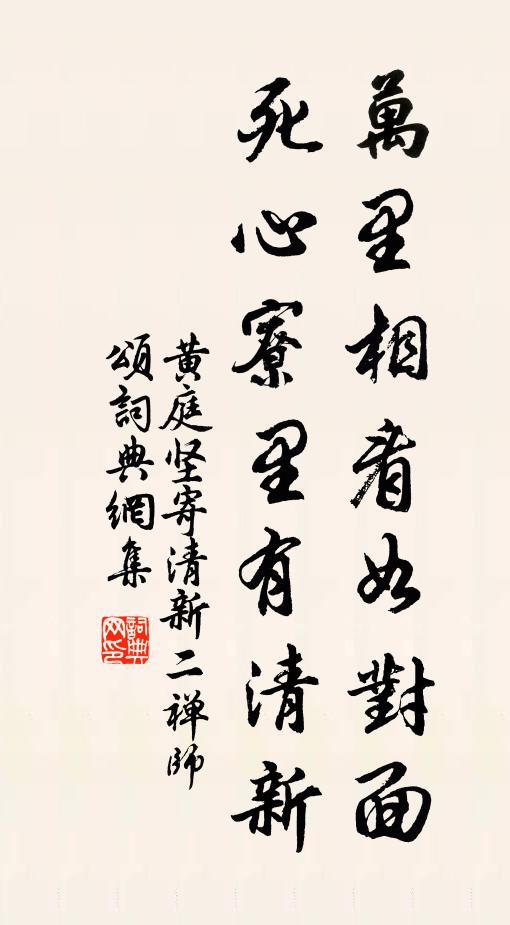 萬里相看如對面
死心寮里有清新
黄庭坚寄清新二禅師
頌詞典網集
詞典网印